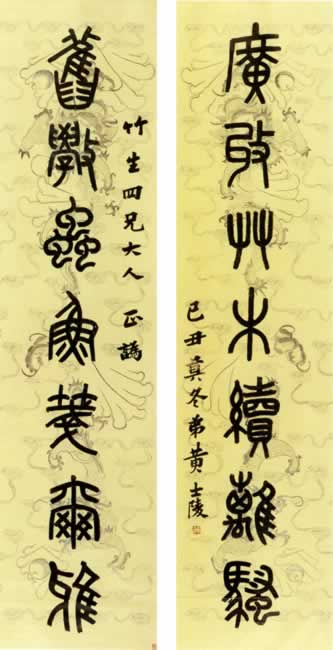 廣艸木續離騷
己丑冬弟黃士陵
竹生四兄大人正譌
舊斆蟲魚箋爾雅